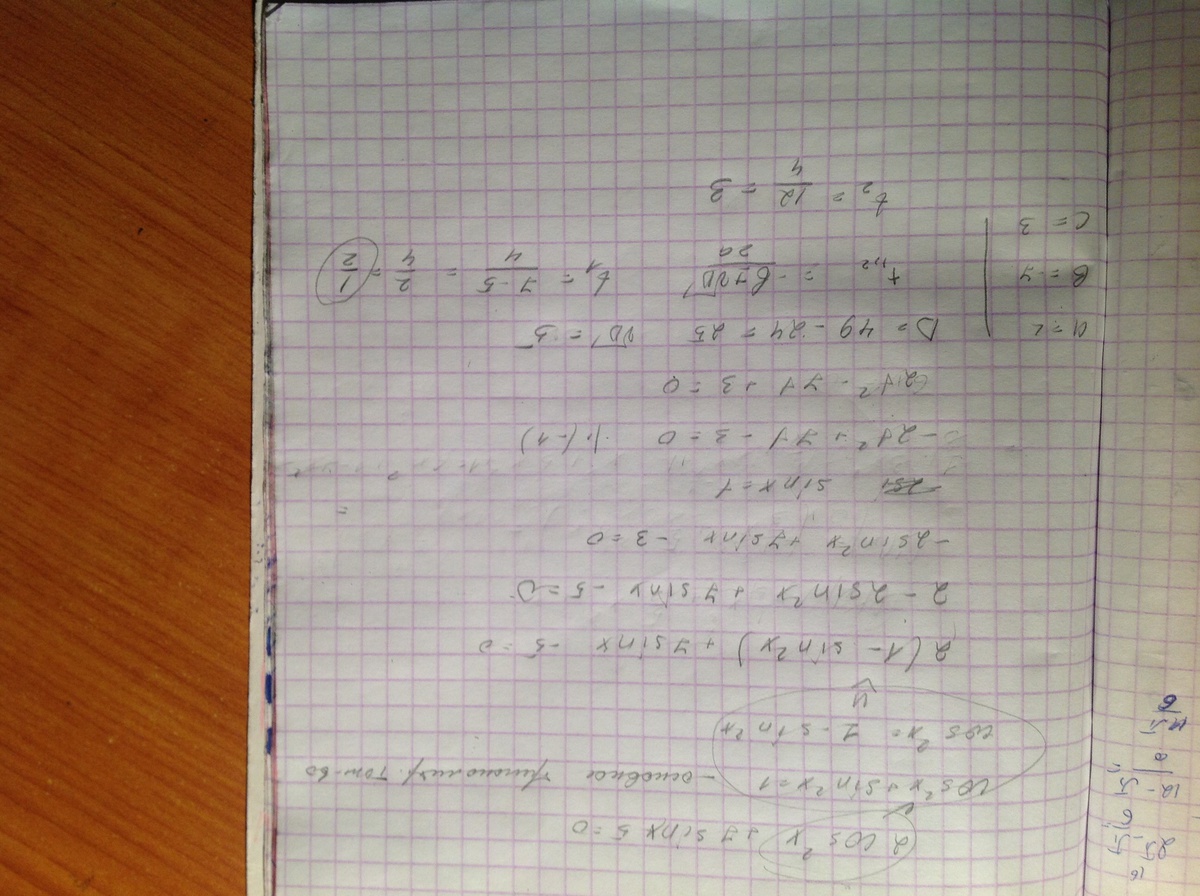 2cos²x +7sinx 5=0
cos²x+sin²x=1 - основное тригонометр. тож-во
cos²x= 1-sin²x
2(1- sin²x) +7sinx -5=0
2-2sin²x +7sinx -5=0
-2sin²x +7sinx -3=0
sinx=t
-2t²+7t-3=0 |·(-1)
2t²-7t+3=0
a=2
b=-7
c=3
D=49-24=25 √D=5
t₁,₂ = -b±√D / 2a t₁= 7-5 / 4 = 2/4 = 1/2
t₂ = 12/4 = 3